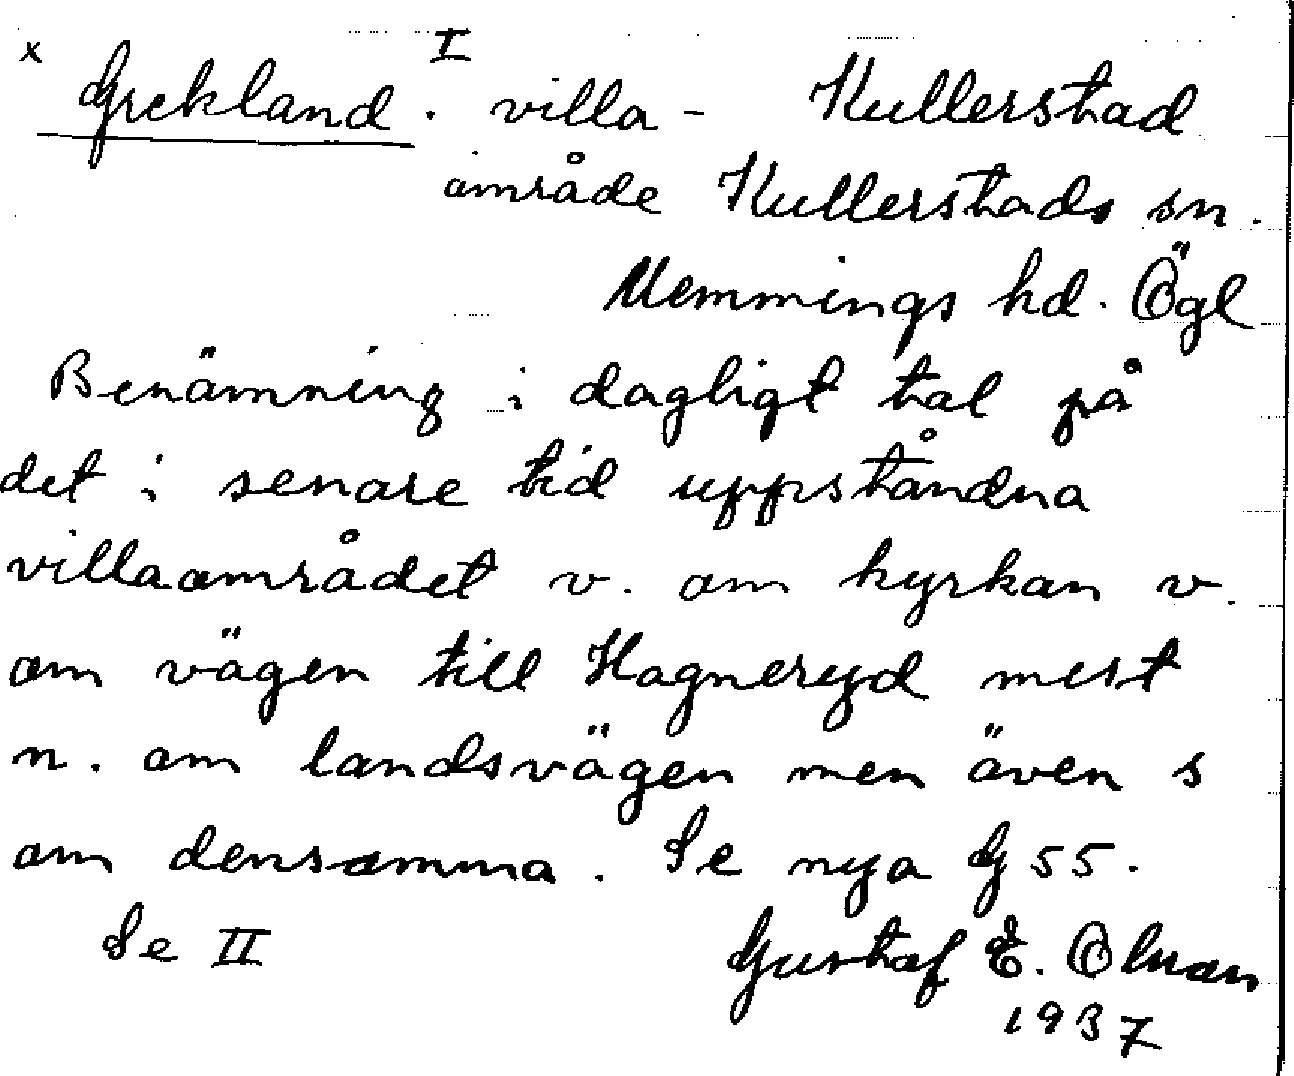 x Grekland. I villa- Kullerstad
område Kullerstads sn.
Memmings hd. Ögl
Benämning i dagligt tal på
det i senare tid uppståndna
villaområdet v. om kyrkan v.
om vägen till Hagneryd mest
n. om landsvägen men även s
om densamma. Se nya G 55.
Se II Gustaf E. Olson
1937